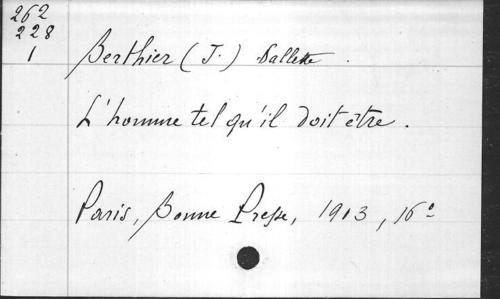 262
228
1
Berthier (J.) Sallette.
L'homme tel qu'il doit être.
Paris, Bonne Presse, 1913, 16º